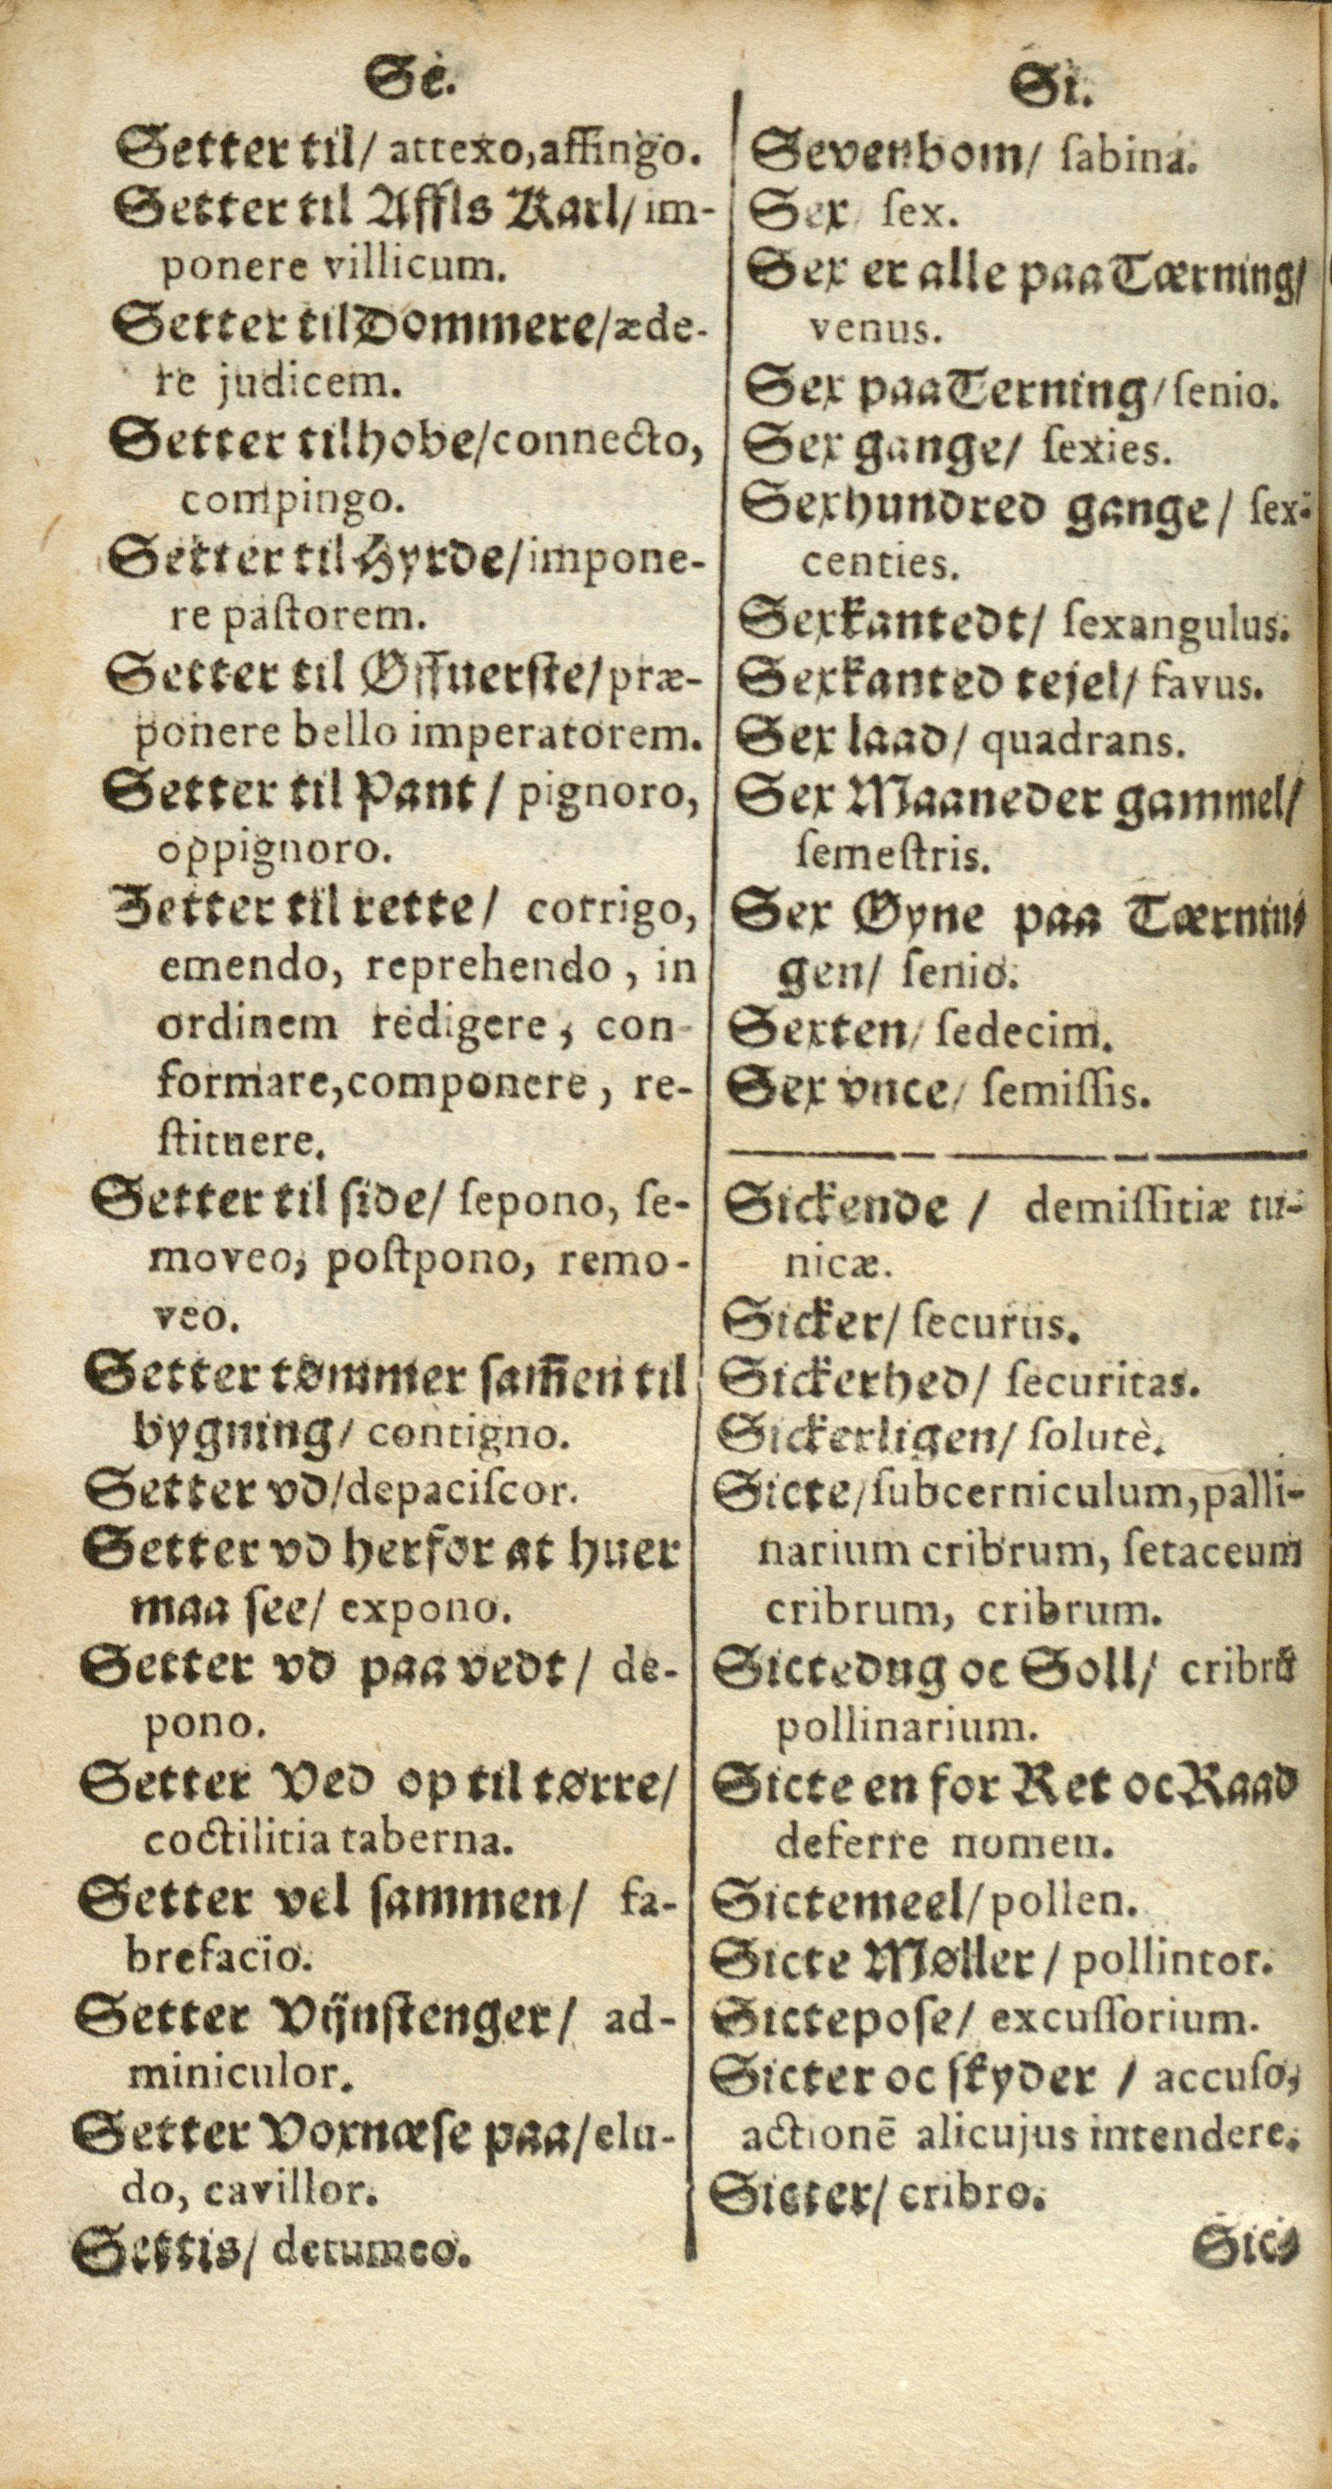 Se.
Setter til/ attexo, affingo.
Setter til Affls Karl/ im-
ponere villicum.
Setter til Dommere/ æde-
re judicem.
Setter tilhobe/ connecto,
compingo.
Setter til Hyrde/ impone-
re paſtorem.
Setter til Øffuerſte/ præ-
ponere bello imperatorem.
Setter til Pant / pignoro,
oppignoro.
Setter til rette/ corrigo,
emendo, reprehendo, in
ordinem redigere, con-
formare, componere, re-
ſtituere.
Setter til ſide/ ſepono, ſe-
moveo, poſtpono, remo-
veo.
Setter tømmer ſam̅en til
bygning/ contigno.
Setter vd/ depaciſcor.
Setter vd herfor at huer
maa ſee/ expono.
Setter vd paa vedt/ de-
pono.
Setter Ved op til tørre/
coctilitia taberna.
Setter vel ſammen/ fa-
brefacio.
Setter Vijnſtenger/ ad-
miniculor.
Setter Voxnæſe paa/ elu-
do, cavillor.
Settis/ detumeo.
Si.
Sevenbom/ ſabina.
Sex/ ſex.
Sex er alle paa Tærning/
venus.
Sex paa Terning/ ſenio.
Sex gange/ ſexies.
Sexhundred gange/ ſex-
centies.
Sexkantedt/ ſexangulus.
Sexkanted tejel/ favus.
Sex laad/ quadrans.
Sex Maaneder gammel/
ſemeſtris.
Sex Øyne paa Tærnin-
gen/ ſenio.
Sexten/ ſedecim.
Sex vnce/ ſemiſſis.
Sickende / demiſſitiæ tu-
nicæ.
Sicker/ ſecurus.
Sickerhed/ ſecuritas.
Sickerligen/ ſolutè.
Sicte/ ſubcerniculum, palli-
narium cribrum, ſetaceum
cribrum, cribrum.
Sictedug oc Soll/ cribrū
pollinarium.
Sicte en for Ret oc Raad
deferre nomen.
Sictemeel/ pollen.
Sicte Møller/ pollintor.
Sictepoſe/ excuſſorium.
Sicter oc ſkyder / accuſo,
actionē alicujus intendere.
Sicter/ cribro.
Sic-